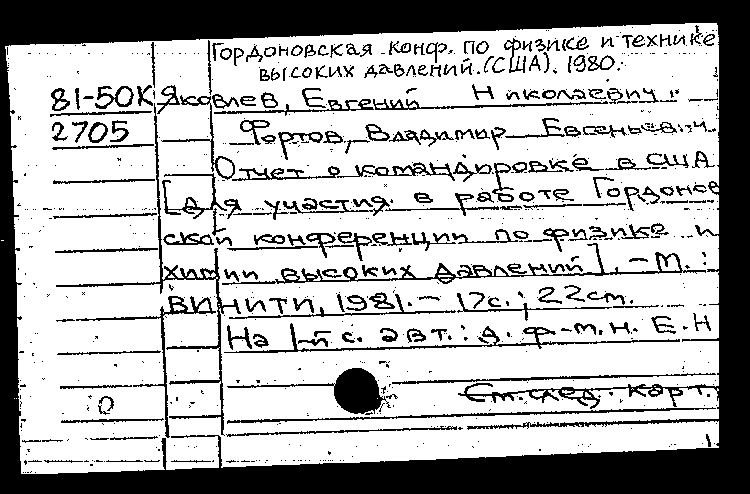 Гордоновская конф. по физике и технике
высоких давлений. (США). 1980.
81-50К Яковлев, Евгений Николаевич.
2705 Фортов, Владимир Евгеньевич.
Отчет о командировке в США
[для участия в работе Гордонов
ской конференции по физике и
химии высоких давлений]. - М.:
ВИНИТИ, 1981. - 17с.; 22см.
На 1-й с. авт.: д. ф.-м. н. Е. Н
См. след. карт.
0